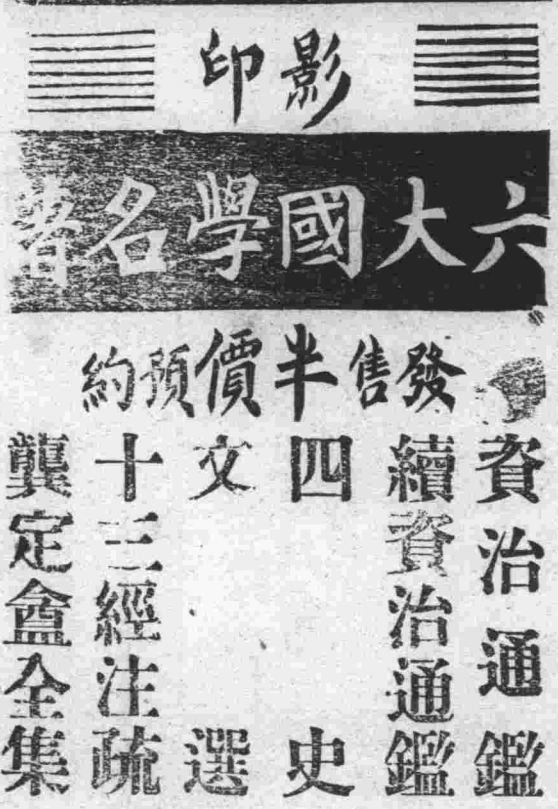 影印
六大國學名著
發售半價預約
資治通鑑
續資治通鑑
四史
文選
十三經注疏
龔定盦全集